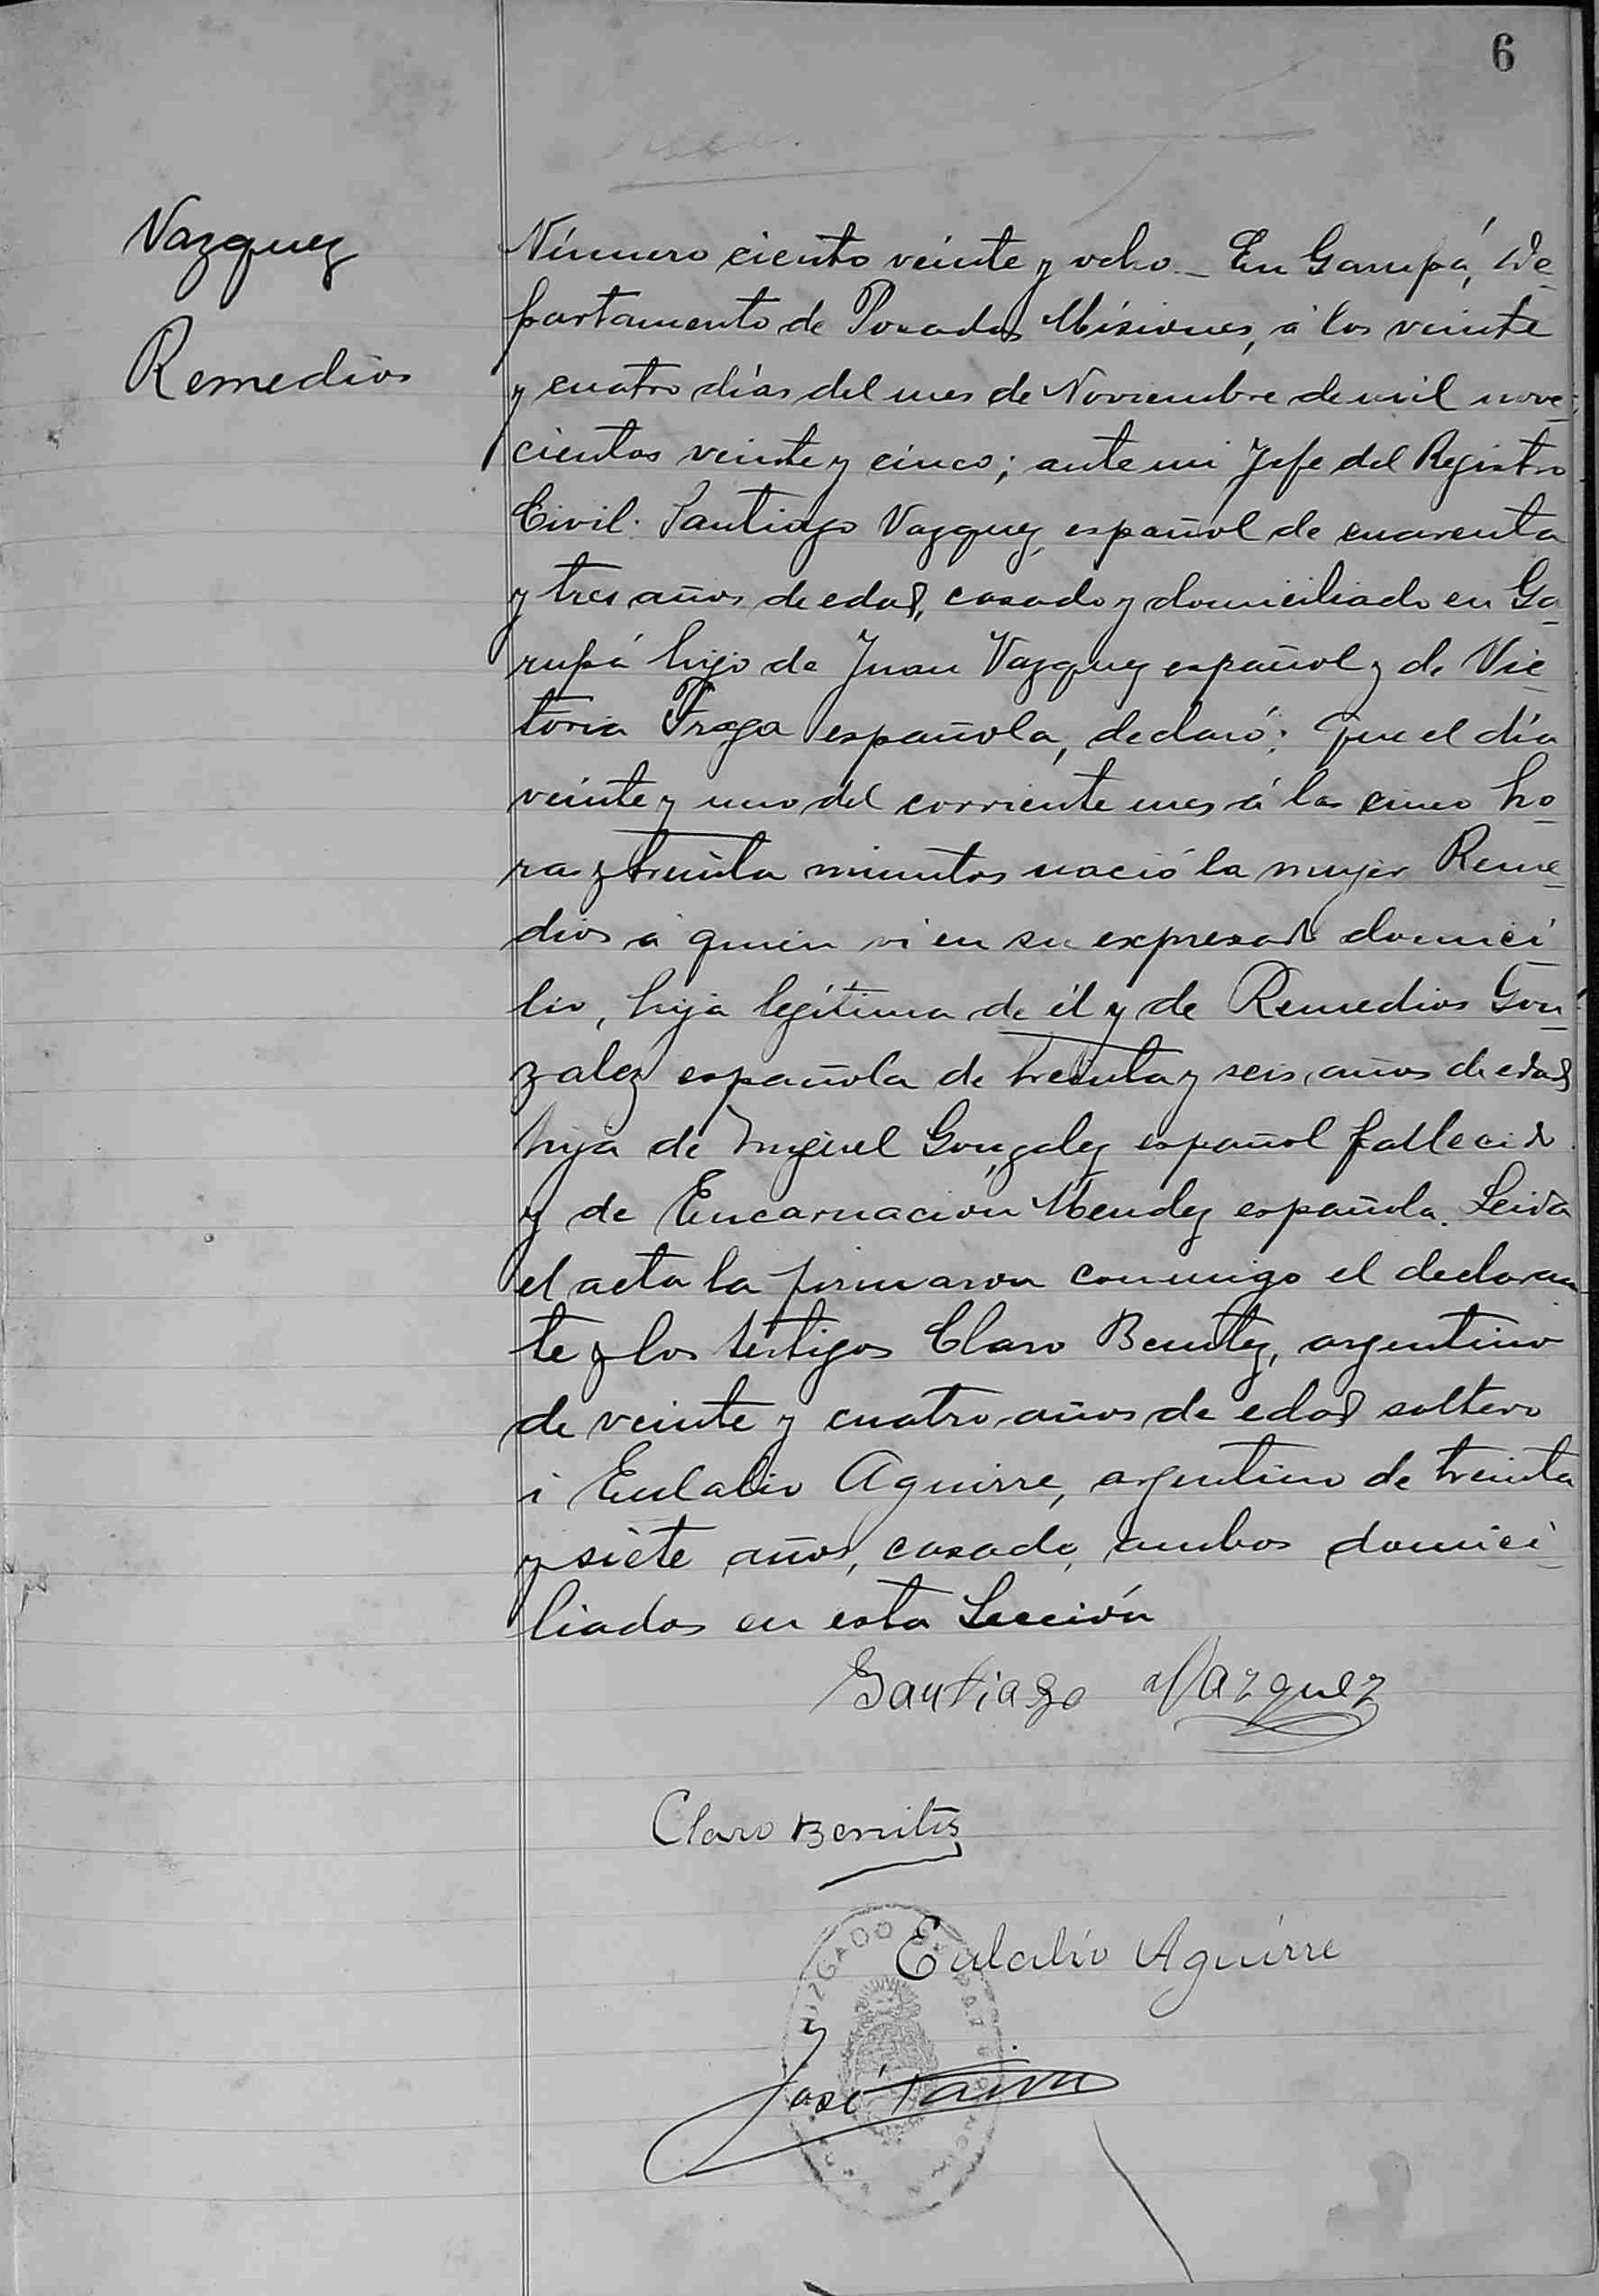 6
Vazquez
Remedios
Número ciento veinte y ocho_ En Garupá, De_
partamento de Posadas Misiones, á los veinte
y cuatro días del mes de Noviembre de mil nove_
cientos veinte y cinco; ante mi Jefe del Registro
Civil: Santiago Vazquez, español de cuarenta
y tres años de edad, casado y domiciliado en Ga_
rupá hijo de Juan Vazquez español y de Vic_
toria Fraga española, declaró: Que el día
veinte y uno del corriente mes á las cinco ho_
ras y treinta minutos nació la mujer Reme_
dios á quien vi en su expresado domici_
lio, hija legítima de él y de Remedios Gon_
zalez española de treinta y seis años de edad
hija de Miguel Gonzalez español fallecido
y de Encarnacion Mendez española. Leida
el acta la firmaron conmigo el declaran_
te y los testigos Claro Benitez, argentino
de veinte y cuatro años de edad soltero
i Eulalio Aguirre, argentino de treinta
y siete años, casado, ambos domici_
liados en esta Sección
Santiago Vazquez
Claro Benites
Eulalio Aguirre
JUZGADO DE PAZ
José